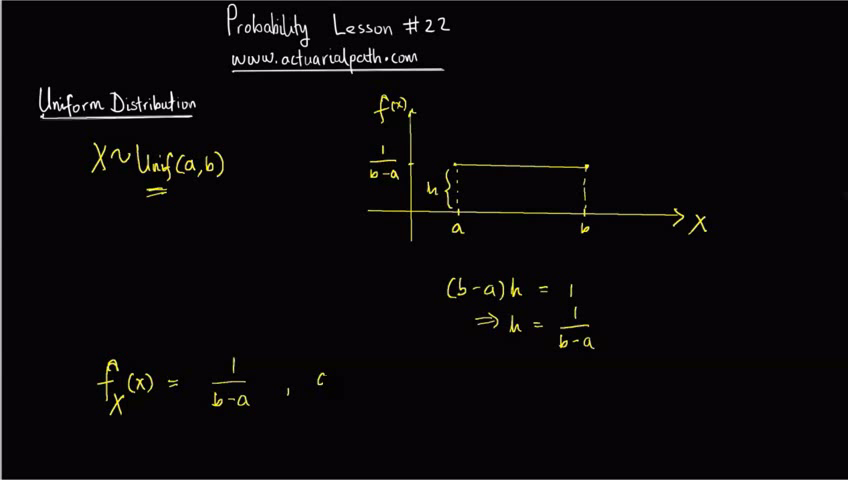 Probability Lesson #22
www.actuarialpath.com
Uniform Distribution
X ~ Unif(a,b)
f(x)
1/(b-a)
h {
a b
X
(b-a)h = 1
⇒ h = 1/(b-a)
f_X(x) = 1/(b-a) ,